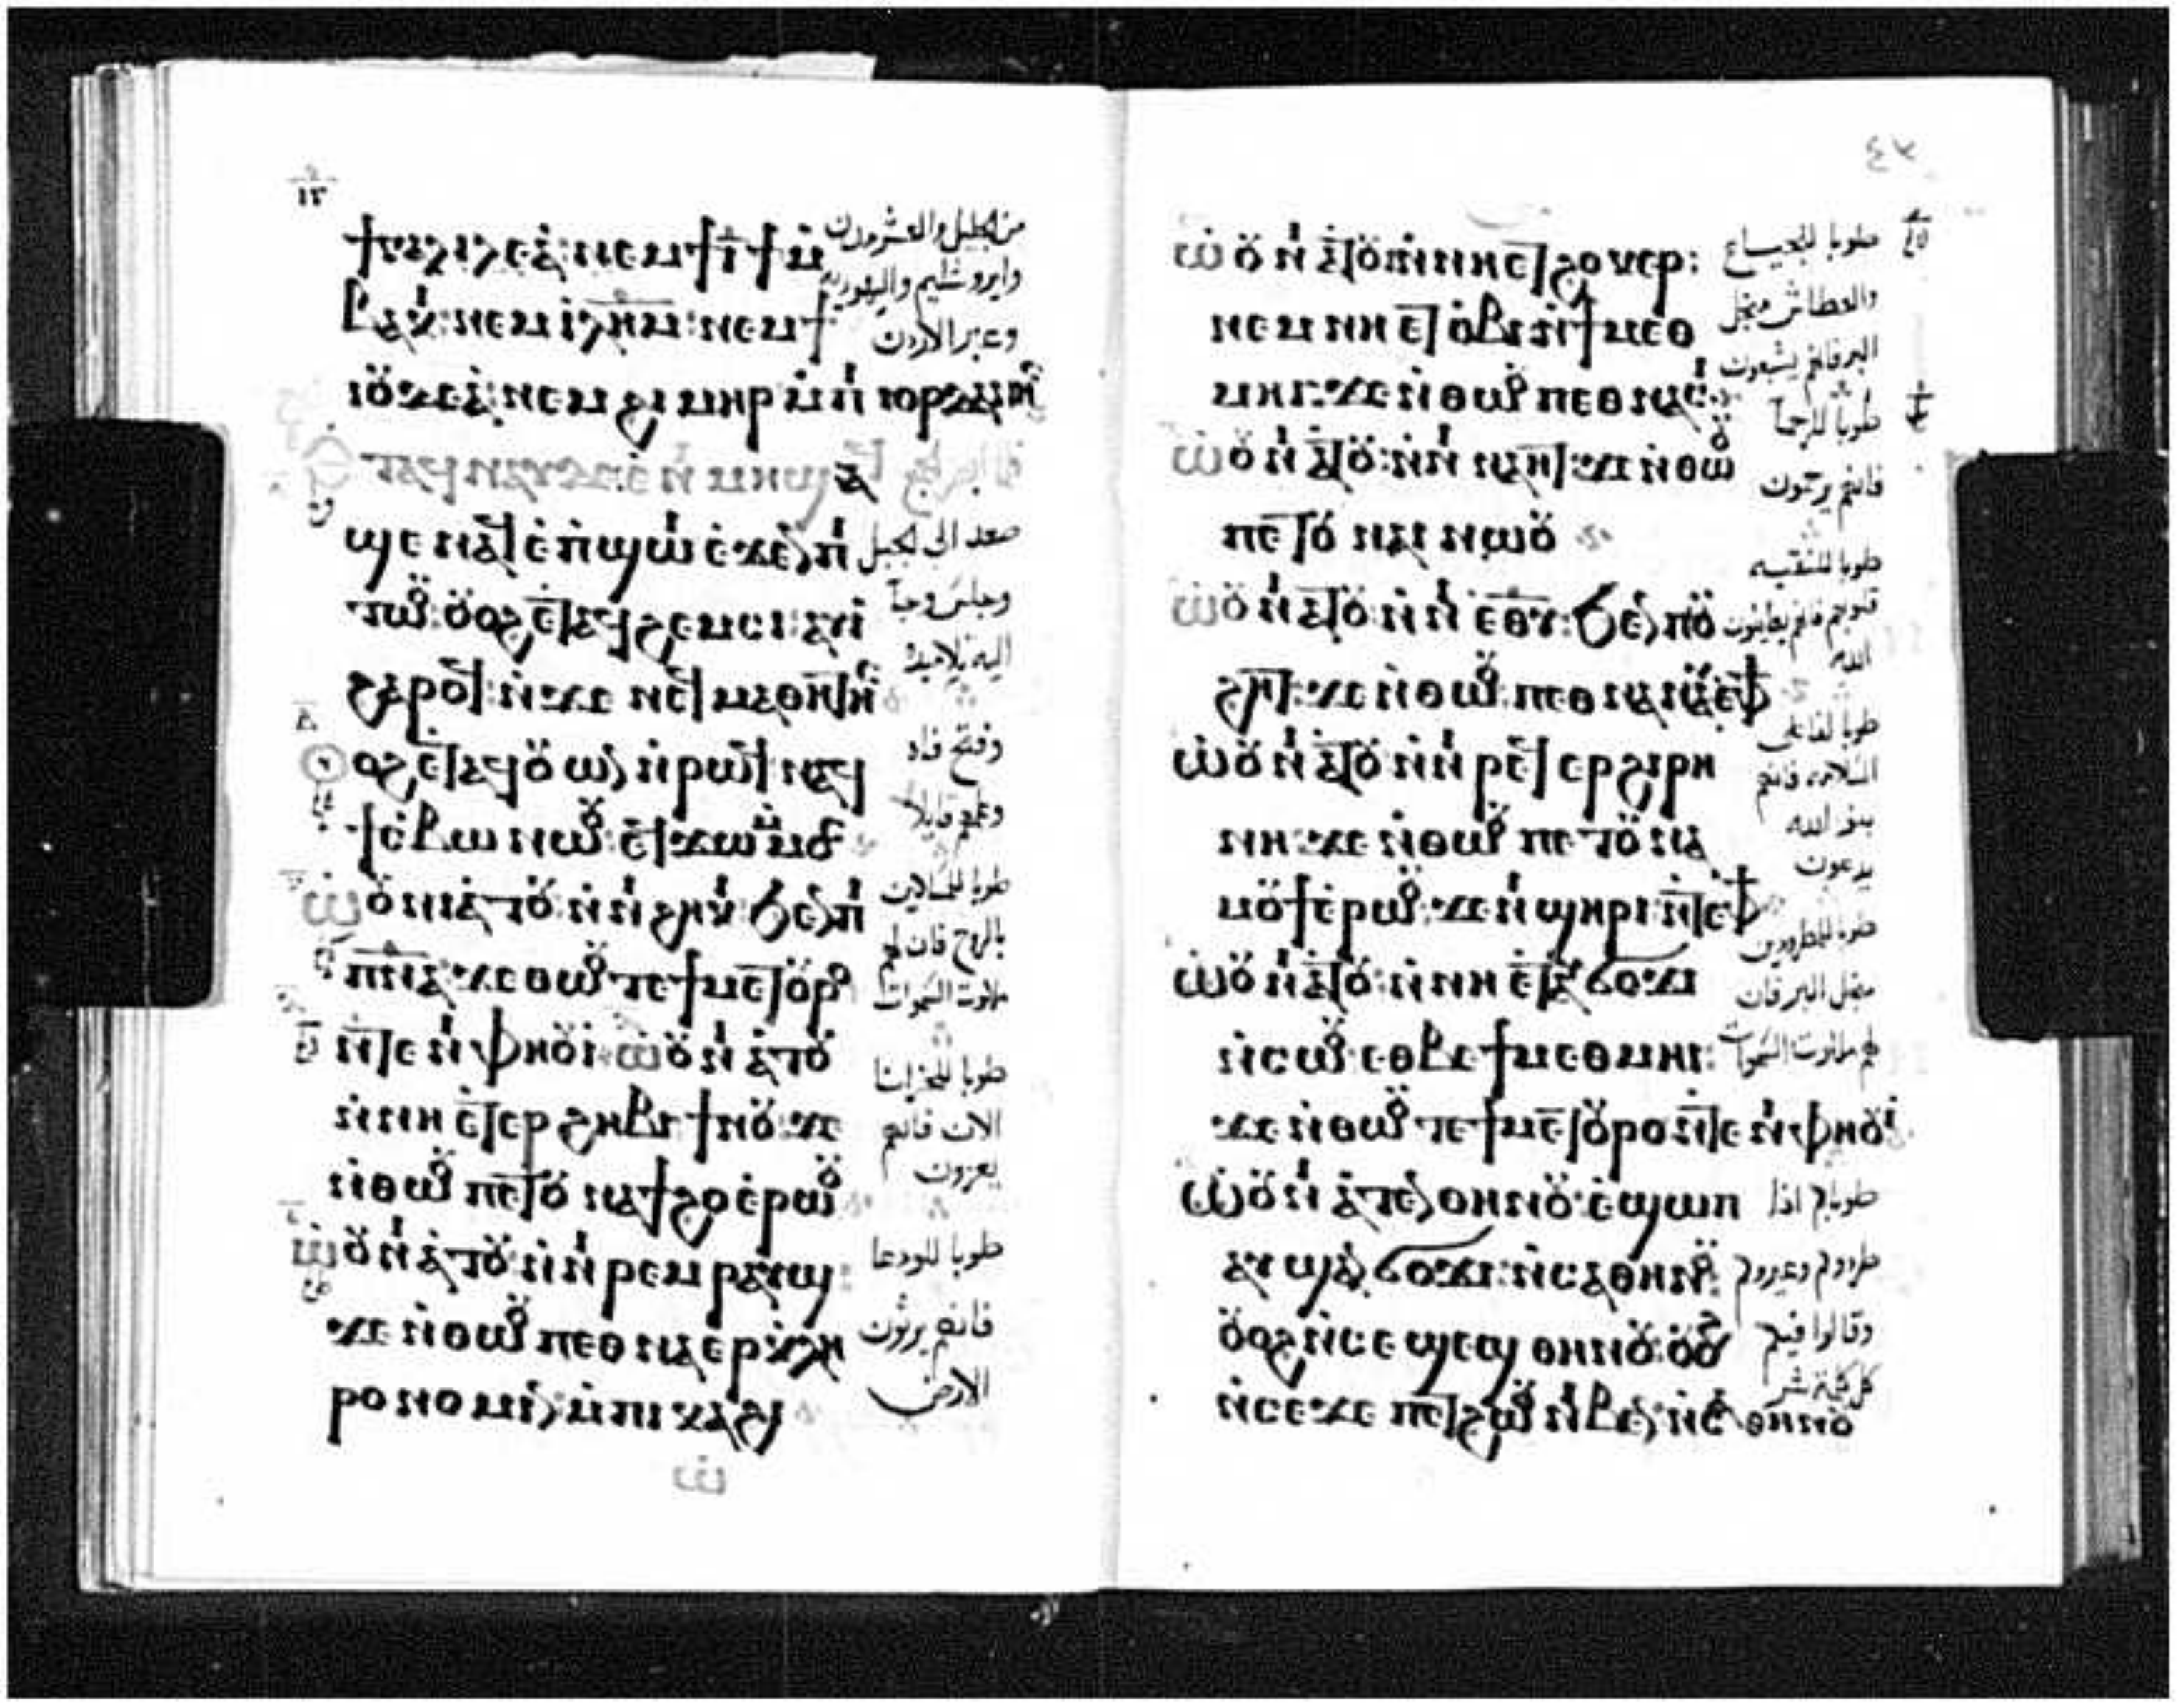 ϯⲅⲁⲗⲓⲗⲉⲁ̀: ⲛⲉⲙ ϯⲓ̅ ϯⲙ̀
ⲃⲁⲕⲓ: ⲛⲉⲙ ⲓ̀ⲗ̅ⲏ̅ⲙ̅: ⲛⲉⲙ ϯ
ⲓⲟⲩⲇⲉⲁ̀: ⲛⲉⲙ ϩⲓⲙⲏⲣ ⲙ̀ⲡⲓ ⲓⲟⲣⲇⲁⲛⲏⲥ
ϣⲉ ⲛⲁϥ ⲉ̀ⲡϣⲱⲓ ⲉ̀ϫⲉⲛ ⲡⲓ
ⲧⲱⲟⲩ: ⲟⲩⲟϩ ⲉⲧⲁϥϩⲉⲙⲥⲓ: ⲁⲩⲓ̀
ϩⲁⲣⲟϥ: ⲛ̀ϫⲉ ⲛⲉϥⲙⲁⲑⲏⲧⲏⲥ
ⲟϩ ⲉⲧⲁϥⲟⲩⲱⲛ ⲛ̀ⲣⲱϥ ⲛⲁϥ
ϯⲥⲃⲱ ⲛⲱⲟⲩ: ⲉϥϫⲱ ⲙ̀ⲙⲟⲥ
ⲱ̀ⲟⲩⲛⲓⲁ̀ⲧⲟⲩ: ⲛ̀ⲛⲓϩⲏⲕⲓ ϧⲉⲛ ⲡⲓ
ⲡ̅ⲛ̅ⲁ̅: ϫⲉ ⲑⲱⲟⲩ ⲧⲉ ϯⲙⲉⲧⲟⲩⲣⲟ
ⲛ̀ⲧⲉ ⲛⲓⲫⲏⲟⲩⲓ̀: ⲱ̀ⲟⲩⲛⲓⲁ̀ⲧⲟⲩ
ⲛ̀ⲛⲏ ⲉⲧⲉⲣϩⲏⲃⲓ ϯⲛⲟⲩ: ϫⲉ
ⲛ̀ⲑⲱⲟⲩ ⲡⲉⲧⲟⲩ ⲛⲁϯϩⲟ ⲉ̀ⲣⲱⲟⲩ
ⲱ̀ⲟⲩⲛⲓⲁ̀ⲧⲟⲩ: ⲛ̀ⲛⲓⲣⲉⲙⲣⲁⲩϣ:
ϫⲉ ⲛ̀ⲑⲱⲟⲩ ⲡⲉⲑⲛⲁⲉⲣⲕ̀ⲗⲏ
ⲣⲟⲛⲟⲙⲓⲛ: ⲙ̀ⲡⲓⲕⲁϩⲓ
ⲱ̀
من الجليل والعشر مدن
وايروشليم واليهوديه
وعبر الاردن
صعد الى الجبل
وجلس وجآ
اليه تلاميذه
وفتح فاه
وعلمهم قايلاً
طوبا للمساكين
بالروح فان لهم
ملكوت السموات
طوبا للحزانا
الان فانهم
يعزون
طوبا للودعا
فانهم يرثون
الارض
ⲱ̀ⲟⲩⲛⲓⲁⲧⲟⲩ ⲛ̀ⲛⲏ ⲉⲧϩⲟⲕⲉⲣ:
ⲛⲉⲙ ⲛⲏ ⲉⲧⲟ̀ⲃⲓ ⲛ̀ϯⲙⲉⲑ
ⲙⲏⲓ: ϫⲉ ⲛ̀ⲑⲱⲟⲩ ⲡⲉⲑⲛⲁⲥⲓ
ⲱ̀ⲟⲩⲛⲓⲁⲧⲟⲩ: ⲛ̀ⲛⲓ ⲛⲁⲏⲧ: ϫⲉ ⲛ̀ⲑⲱⲟⲩ
ⲡⲉⲧⲟⲩ ⲛⲁⲓ ⲛⲱⲟⲩ
ⲱ̀ⲟⲩⲛⲓⲁⲧⲟⲩ: ⲛ̀ⲛⲓ ⲉⲑⲩ: ϧⲉⲛ ⲡⲟⲩ
ϩⲏⲧ: ϫⲉ ⲛ̀ⲑⲱⲟⲩ ⲡⲉⲑⲛⲁⲛⲁⲩ ⲉⲫϯ
ⲱ̀ⲟⲩⲛⲓⲁⲧⲟⲩ ⲛ̀ⲛⲓⲣⲉϥⲉⲣϩⲓⲣⲏ
ⲛⲏ: ϫⲉ ⲛ̀ⲑⲱⲟⲩ ⲡⲉⲧⲟⲩⲛⲁ
ⲙⲟⲩϯ ⲉ̀ⲣⲱⲟⲩ: ϫⲉ ⲛⲓϣⲏⲣⲓ ⲛ̀ⲧⲉ ⲫϯ
ⲱ̀ⲟⲩⲛⲓⲁⲧⲟⲩ: ⲛ̀ⲛⲏ ⲉⲧⲁⲩϭⲟϫⲓ
ⲛ̀ⲥⲱⲟⲩ: ⲉⲑⲃⲉ ϯⲙⲉⲑⲙⲏⲓ:
ϫⲉ ⲛ̀ⲑⲱⲟⲩ ⲧⲉ ϯⲙⲉⲧⲟⲩⲣⲟ ⲛ̀ⲧⲉ ⲛⲓⲫⲏⲟⲩⲓ̀
ⲱ̀ⲟⲩⲛⲓⲁ̀ⲧⲉⲛ ⲑⲏⲛⲟⲩ: ⲉ̀ϣⲱⲡ
ⲁⲩϣⲁⲛϭⲟϫⲓ: ⲛ̀ⲥⲁ ⲑⲏⲛⲟⲩ:
ⲟⲩⲟϩ ⲛ̀ⲥⲉϣⲉϣ ⲑⲏⲛⲟⲩ: ⲟⲩⲟϩ
ⲛ̀ⲥⲉϫⲉ ⲡⲉⲧϩⲱⲟⲩ ⲛⲓⲃⲉⲛ ⲛ̀ⲥⲁ ⲑⲏⲛⲟⲩ
طوبا للجياع
والعطاش من اجل
البر فانهم يشبعون
طوبا للرحمآ
فانهم يرحمون
طوبا للنقيه
قلوبهم فانهم يعاينون
الله
طوبا لفاعلى
السلامه فانهم
بنو الله
يدعون
طوبا للمطرودين
من اجل البر فان
لهم ملكوت السموات
طوباكم اذا
طردوكم وعيروكم
وقالوا فيكم
كل كلمة شر